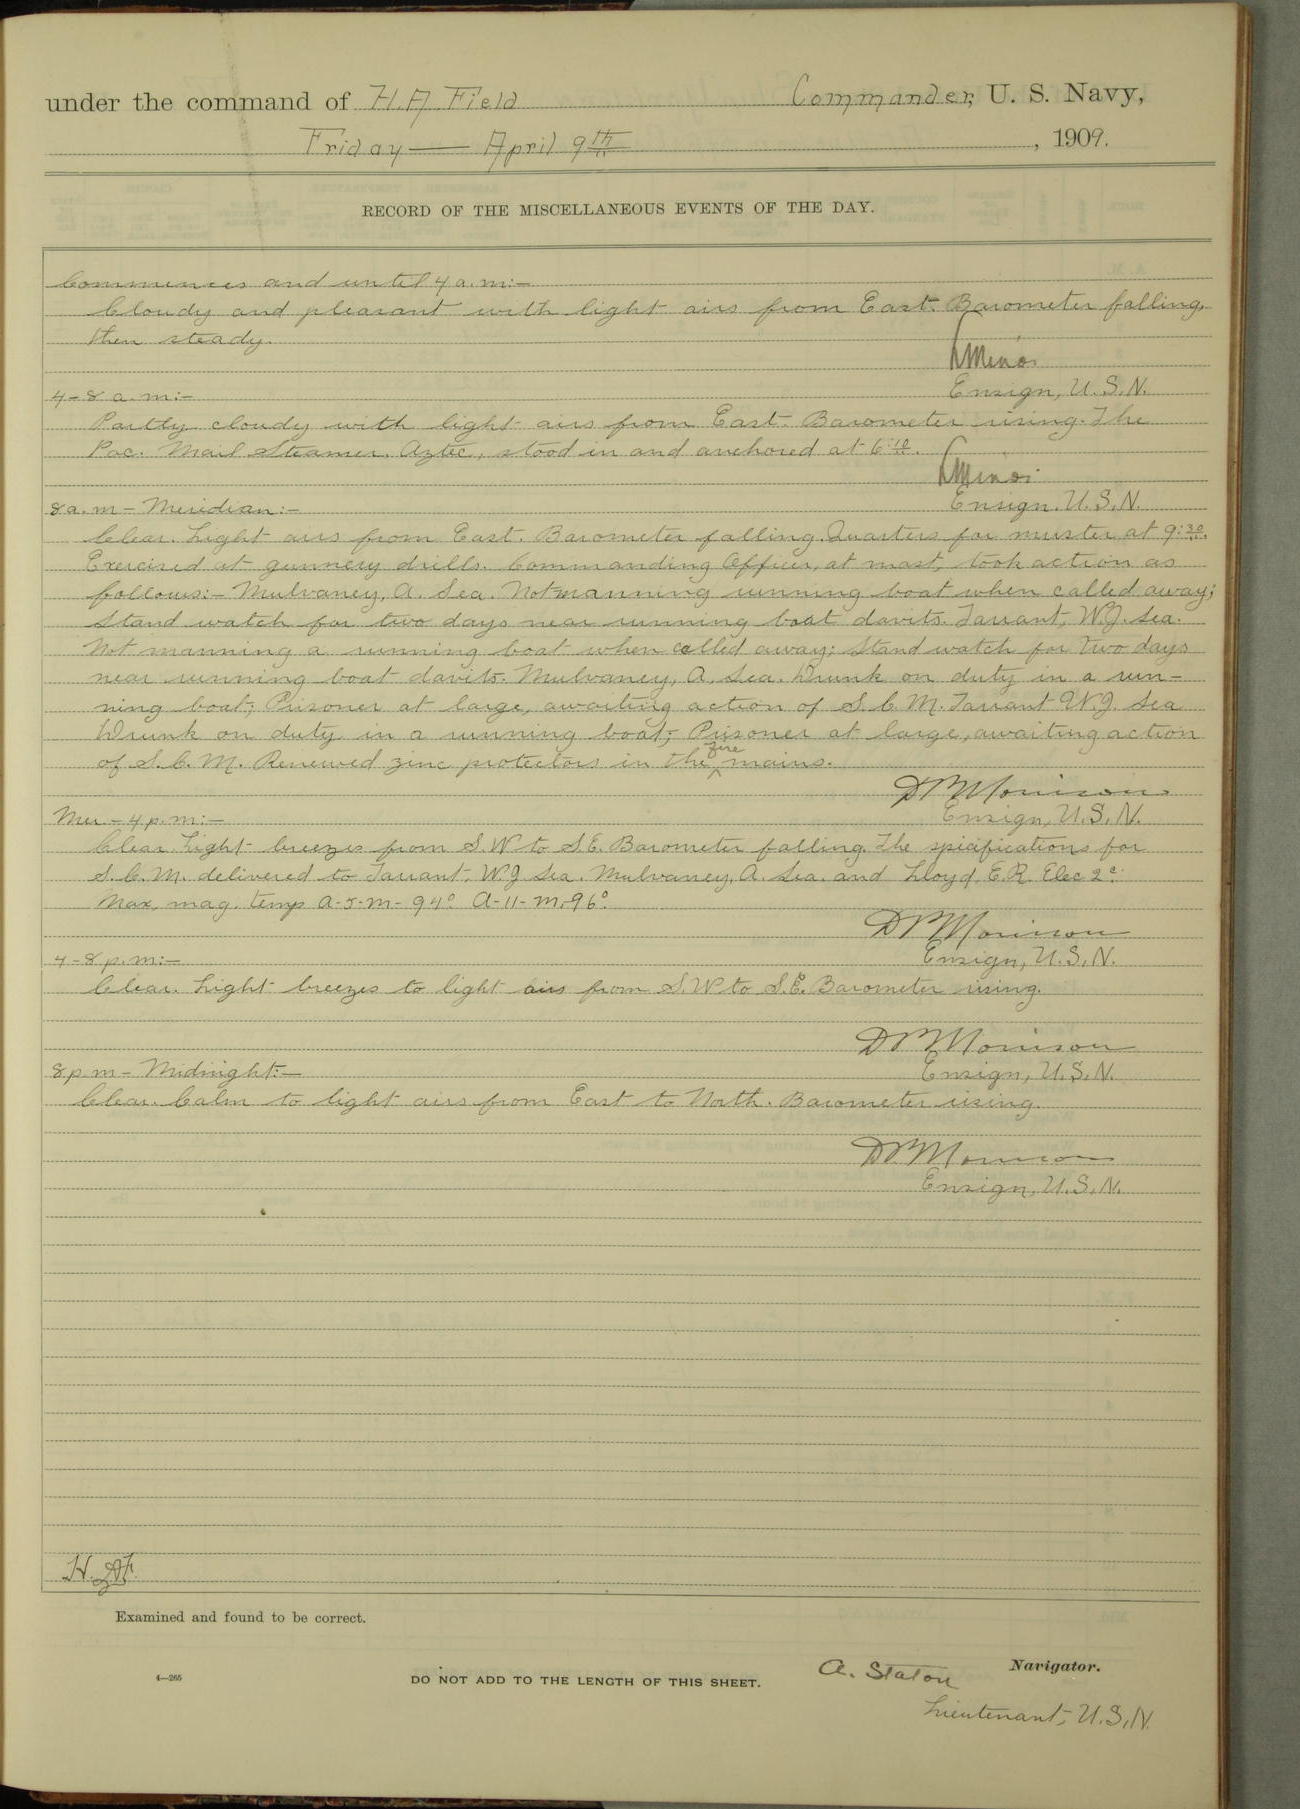 under the command of H. A. Field Commander, U. S. Navy,
Friday — April 9th, 1909.
RECORD OF THE MISCELLANEOUS EVENTS OF THE DAY.
Commences and until 4 a.m:-
Cloudy and pleasant with light airs from East. Barometer falling,
then steady.
Ensign, U.S.N.
4-8 a.m:-
Partly cloudy with light airs from East. Barometer rising. The
Pac. Mail Steamer. Aztec, stood in and anchored at 6:10.
Ensign. U.S.N.
8 a.m - Meridian:-
Clear. Light airs from East. Barometer falling. Quarters for muster at 9:30.
Exercised at gunnery drills. Commanding Officer, at mast, took action as
follows:- Mulvaney, A. Sea. Not manning running boat when called away;
Stand watch for two days near running boat davits. Tarrant, W.J. Sea.
Not manning a running boat when called away; Stand watch for two days
near running boat davits. Mulvaney, A. Sea. Drunk on duty in a run-
ning boat; Prisoner at large, awaiting action of S.C.M. Tarrant W.J. Sea
Drunk on duty in a running boat; Prisoner at large, awaiting action
of S.C.M. Renewed zinc protectors in the fire mains.
D Morrison
Ensign, U.S.N.
Mer - 4 p.m:-
Clear. Light breezes from S.W to S.E. Barometer falling. The specifications for
S.C.M. delivered to Tarrant, W.J Sea. Mulvaney, A. Sea. and Lloyd, E.R. Elec 2c.
Max. mag. temp A-5-m- 94° A-11-m. 96°.
D Morrison
Ensign, U.S.N.
4-8 p.m:-
Clear. Light breezes to light airs from S.W to S.E. Barometer rising.
D Morrison
Ensign, U.S.N.
8 p.m - Midnight:-
Clear. Calm to light airs from East to North. Barometer rising.
D Morrison
Ensign, U.S.N.
H. A. F.
Examined and found to be correct.
4—265
DO NOT ADD TO THE LENGTH OF THIS SHEET.
A. Staton Navigator.
Lieutenant, U.S.N.